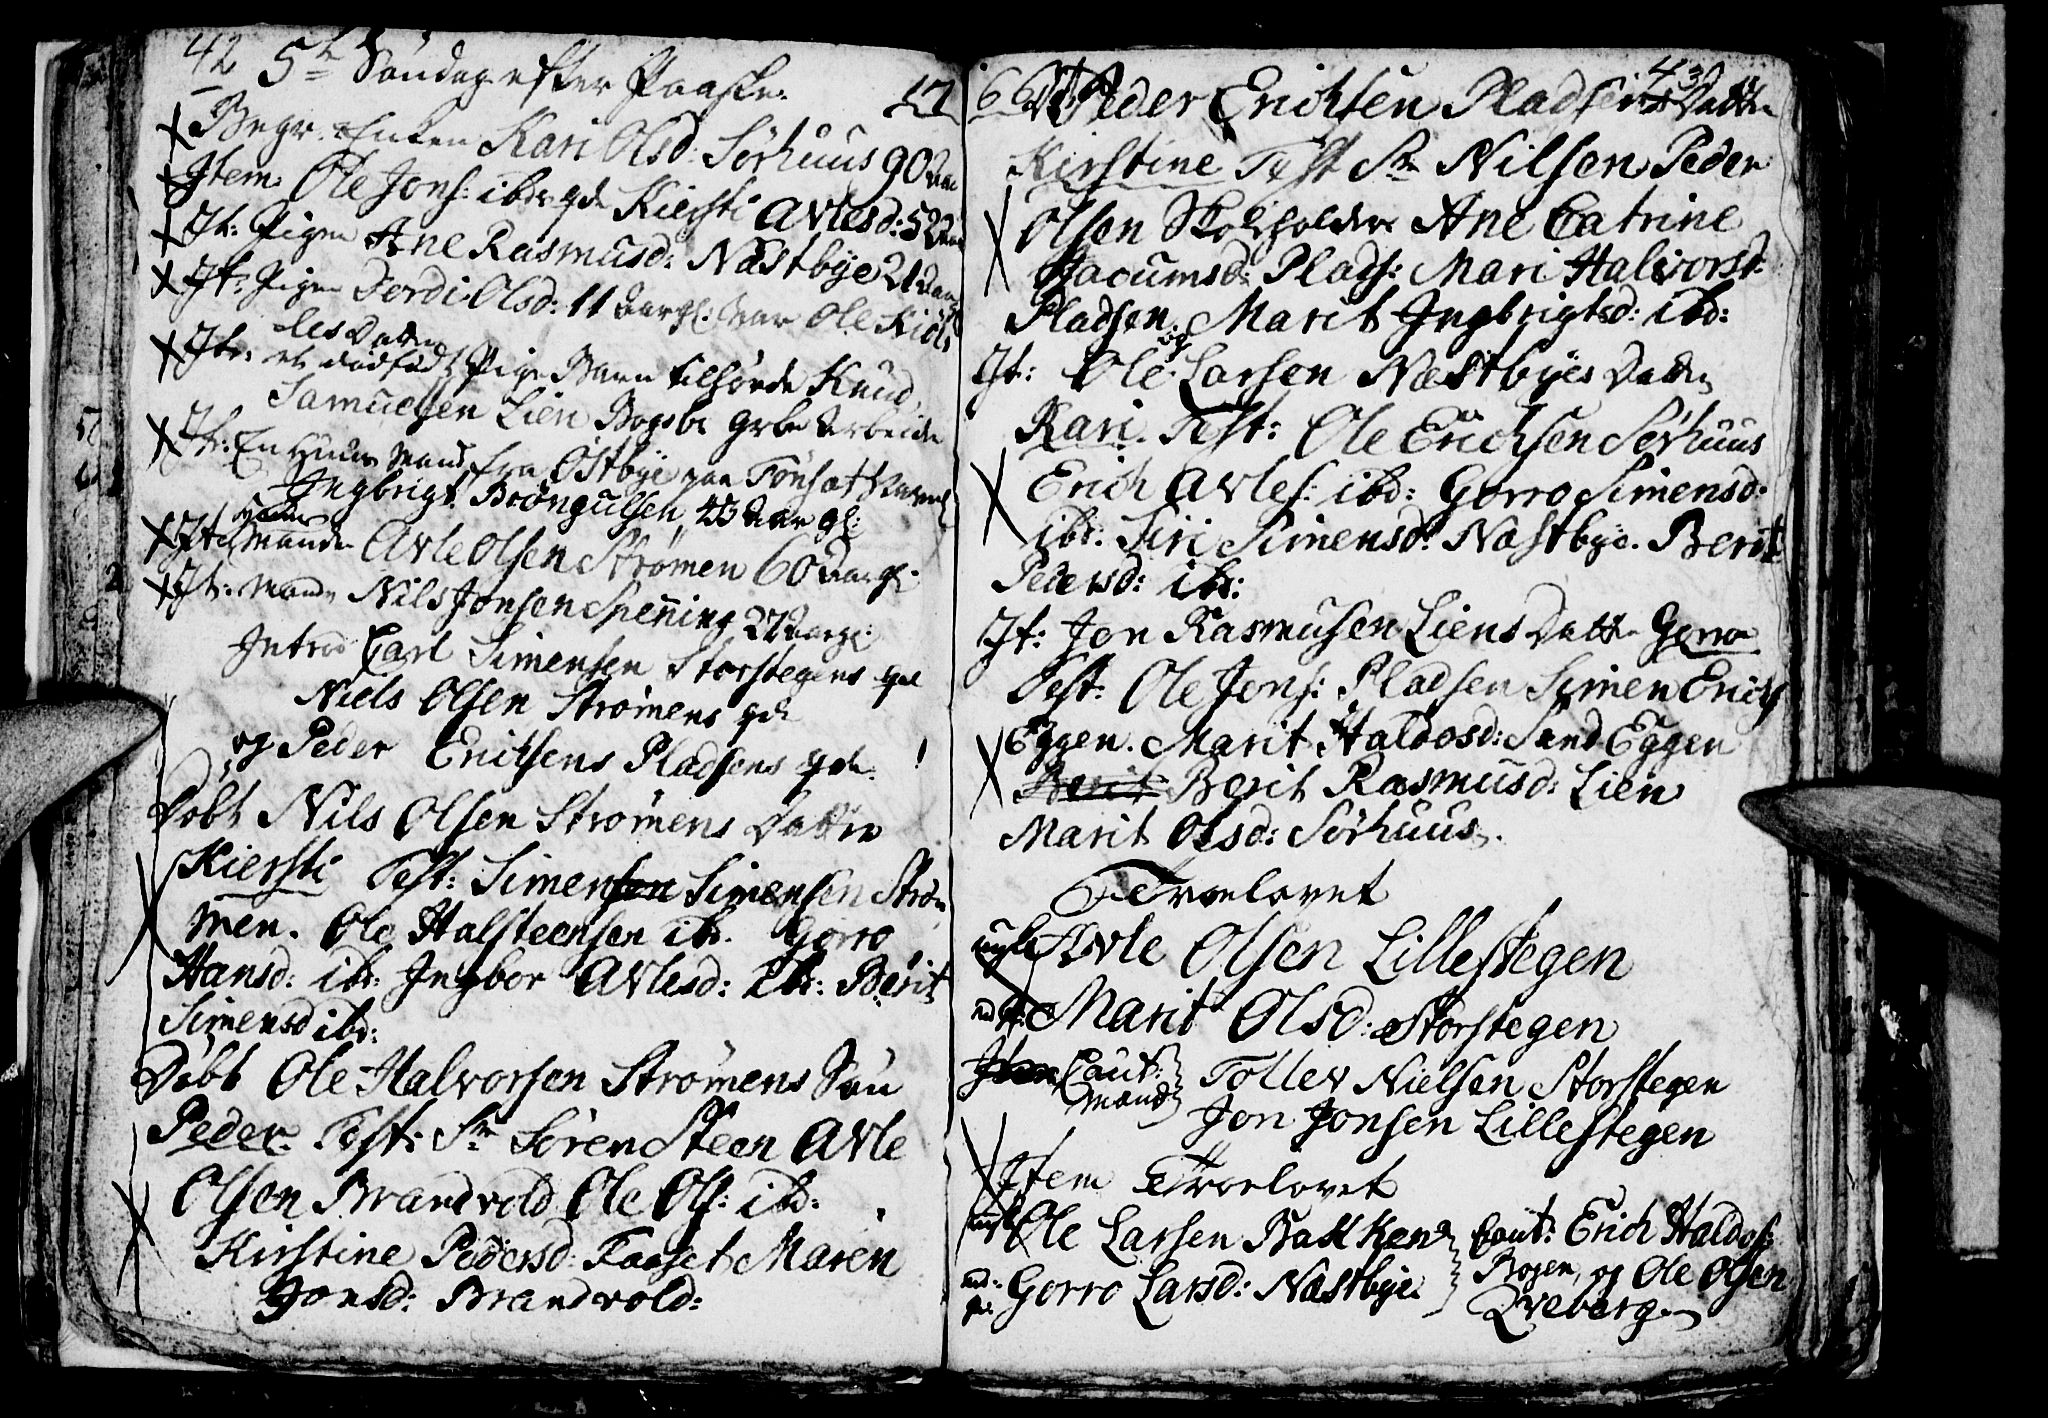 42 5te Søndag efter Paaske. 17
Begr. Enken Kari Olsd: Sørhuus 90 Aar
Item Ole Jons: ibr qde Kiersti Arlesd: 52 Aar
It: Pigen Ane Rasmusd: Næstbye 21 Aar
It: Pigen Jordi Olsd: 11 Aar gl: var Ole Kiøls
les Datter
It: et dødfødt Pige Barn tilhørde Knud
Samuelsen Lien Bogsb: Grbr Arbeider
It: En Huus Mand fra Østbye paa Tønset
Ingbrigt Brøngulsen 43 Aar gl:
It: Manden Arle Olsen Strømen 60 Aar gl:
It: Mand Nils Jonsen Spening 27 Aar gl:
Introd Carl Simensen Storstegens qde
Niels Olsen Strømens qde
og Peder Erichsens Pladsens qde.
Døbt Nils Olsen Strømens Datter
Kiersti Test: Simensen Simensen Strø
men. Ole Halsteensen ibr. Gorro
Hansd: ibr: Ingbor Arlesd: ibr: Berit
Simensd ibr:
Døbt Ole Halvorsen Strømens Søn
Peder. Test: Sr Søren Steen Arle
Olsen Brandvold Ole Ols: ibd:
Kirstine Pedersd: Faaset Maren
Jonsd: Brandvold:
66 43
It: Peder Erichsen Pladsens Datter
Kirstine Test Sr Nilsen Peder
Olsen Skoleholder Ane Catrine
Jacumsd: Plads: Mari Halvorsd:
Pladsen. og Marit Ingbrigtsd: ibd:
It: Ole Larsen Næstbyes Datter
Kari. Test: Ole Erichsen Sørhuus
Erich Arles: ibd: Gorro Simensd:
ibr: Siri Simensd: Næstbye. Berit
Pedersd: ibr:
It: Jon Rasmusen Liens Datter Gorro
Test: Ole Jons: Pladsen Simen Erichs
Eggen. Marit Haldosd: Sand Eggen
Berit Berit Rasmusd: Lien
Marit Olsd: Sørhuus.
Trolovet
ungk Arle Olsen Lillestegen
ed P: Marit Olsd: Storstegen
Item Caut: Tollev Nielsen Storstegen
Mænd Jon Jonsen Lillestegen
Item Trolovet
ungk Ole Larsen Bakken Caut: Erich Haldos:
Bogen, og Ole Olsen
ed: pi: Gorro Larsd: Næstbye
Qveberg